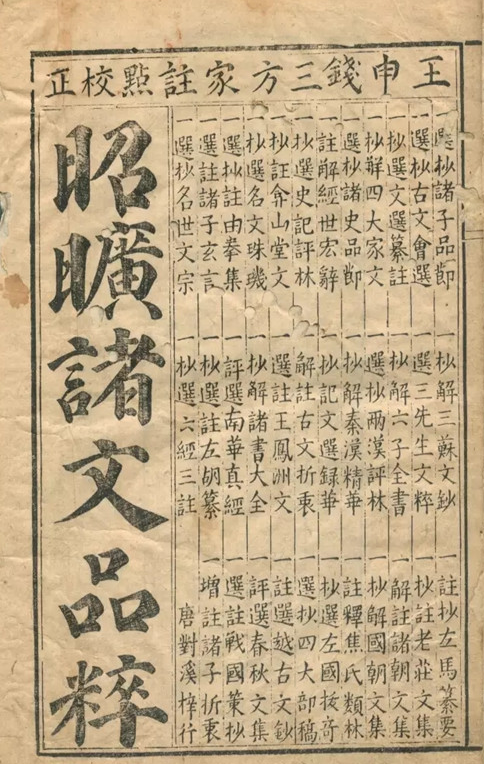 王申錢三方家註點校正
一選抄諸子品節 一抄解三蘇文鈔 一註抄左馬纂要
一選抄古文會選 一選三先生文粹 一抄註老莊文集
一抄選文選纂註 一抄解六子全書 一解註諸朝文集
一抄觧四大家文 一選抄兩漢評林 一抄解國朝文集
一選抄諸史品節 一抄解秦漢精華 一註釋焦氏類林
一註解經世宏辭 一抄記文選錄華 一抄選左國拔奇
一抄選史記評林 一解註古文折衷 一選抄四大部稿
一抄註弇山堂文 一選註王鳳洲文 一註選越古文鈔
一抄選名文珠璣 一抄解諸書大全 一評選春秋文集
一選抄註由拳集 一評選南華真經 一選註戰國策抄
一選註諸子玄言 一抄選註左胡纂 一增註諸子折衷
一選抄名世文宗 一抄選六經三註 唐對溪梓行
昭曠諸文品粹